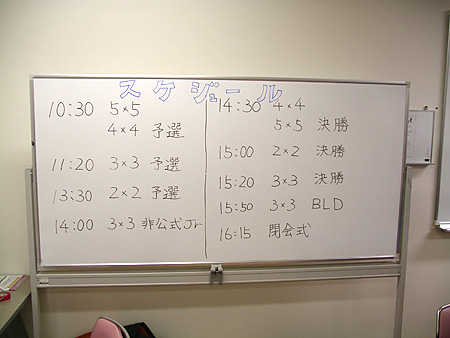 スケジュール
10:30 5×5
4×4 予選
11:20 3×3 予選
13:30 2×2 予選
14:00 3×3 非公式Jr
14:30 4×4
5×5 決勝
15:00 2×2 決勝
15:20 3×3 決勝
15:50 3×3 BLD
16:15 閉会式